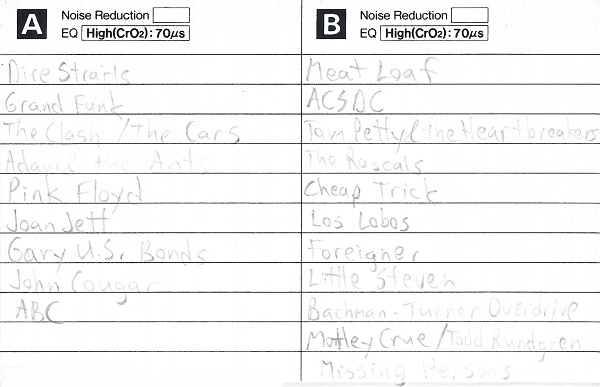 A
Noise Reduction
EQ High(CrO2): 70µs
Dire Straits
Grand Funk
The Clash / The Cars
Adam & the Ants
Pink Floyd
Joan Jett
Gary U.S. Bonds
John Cougar
ABC
B
Noise Reduction
EQ High(CrO2): 70µs
Meat Loaf
ACSDC
Tom Petty & the Heartbreakers
The Rascals
Cheap Trick
Los Lobos
Foreigner
Little Steven
Bachman-Turner Overdrive
Motley Crue / Todd Rundgren
Missing Persons